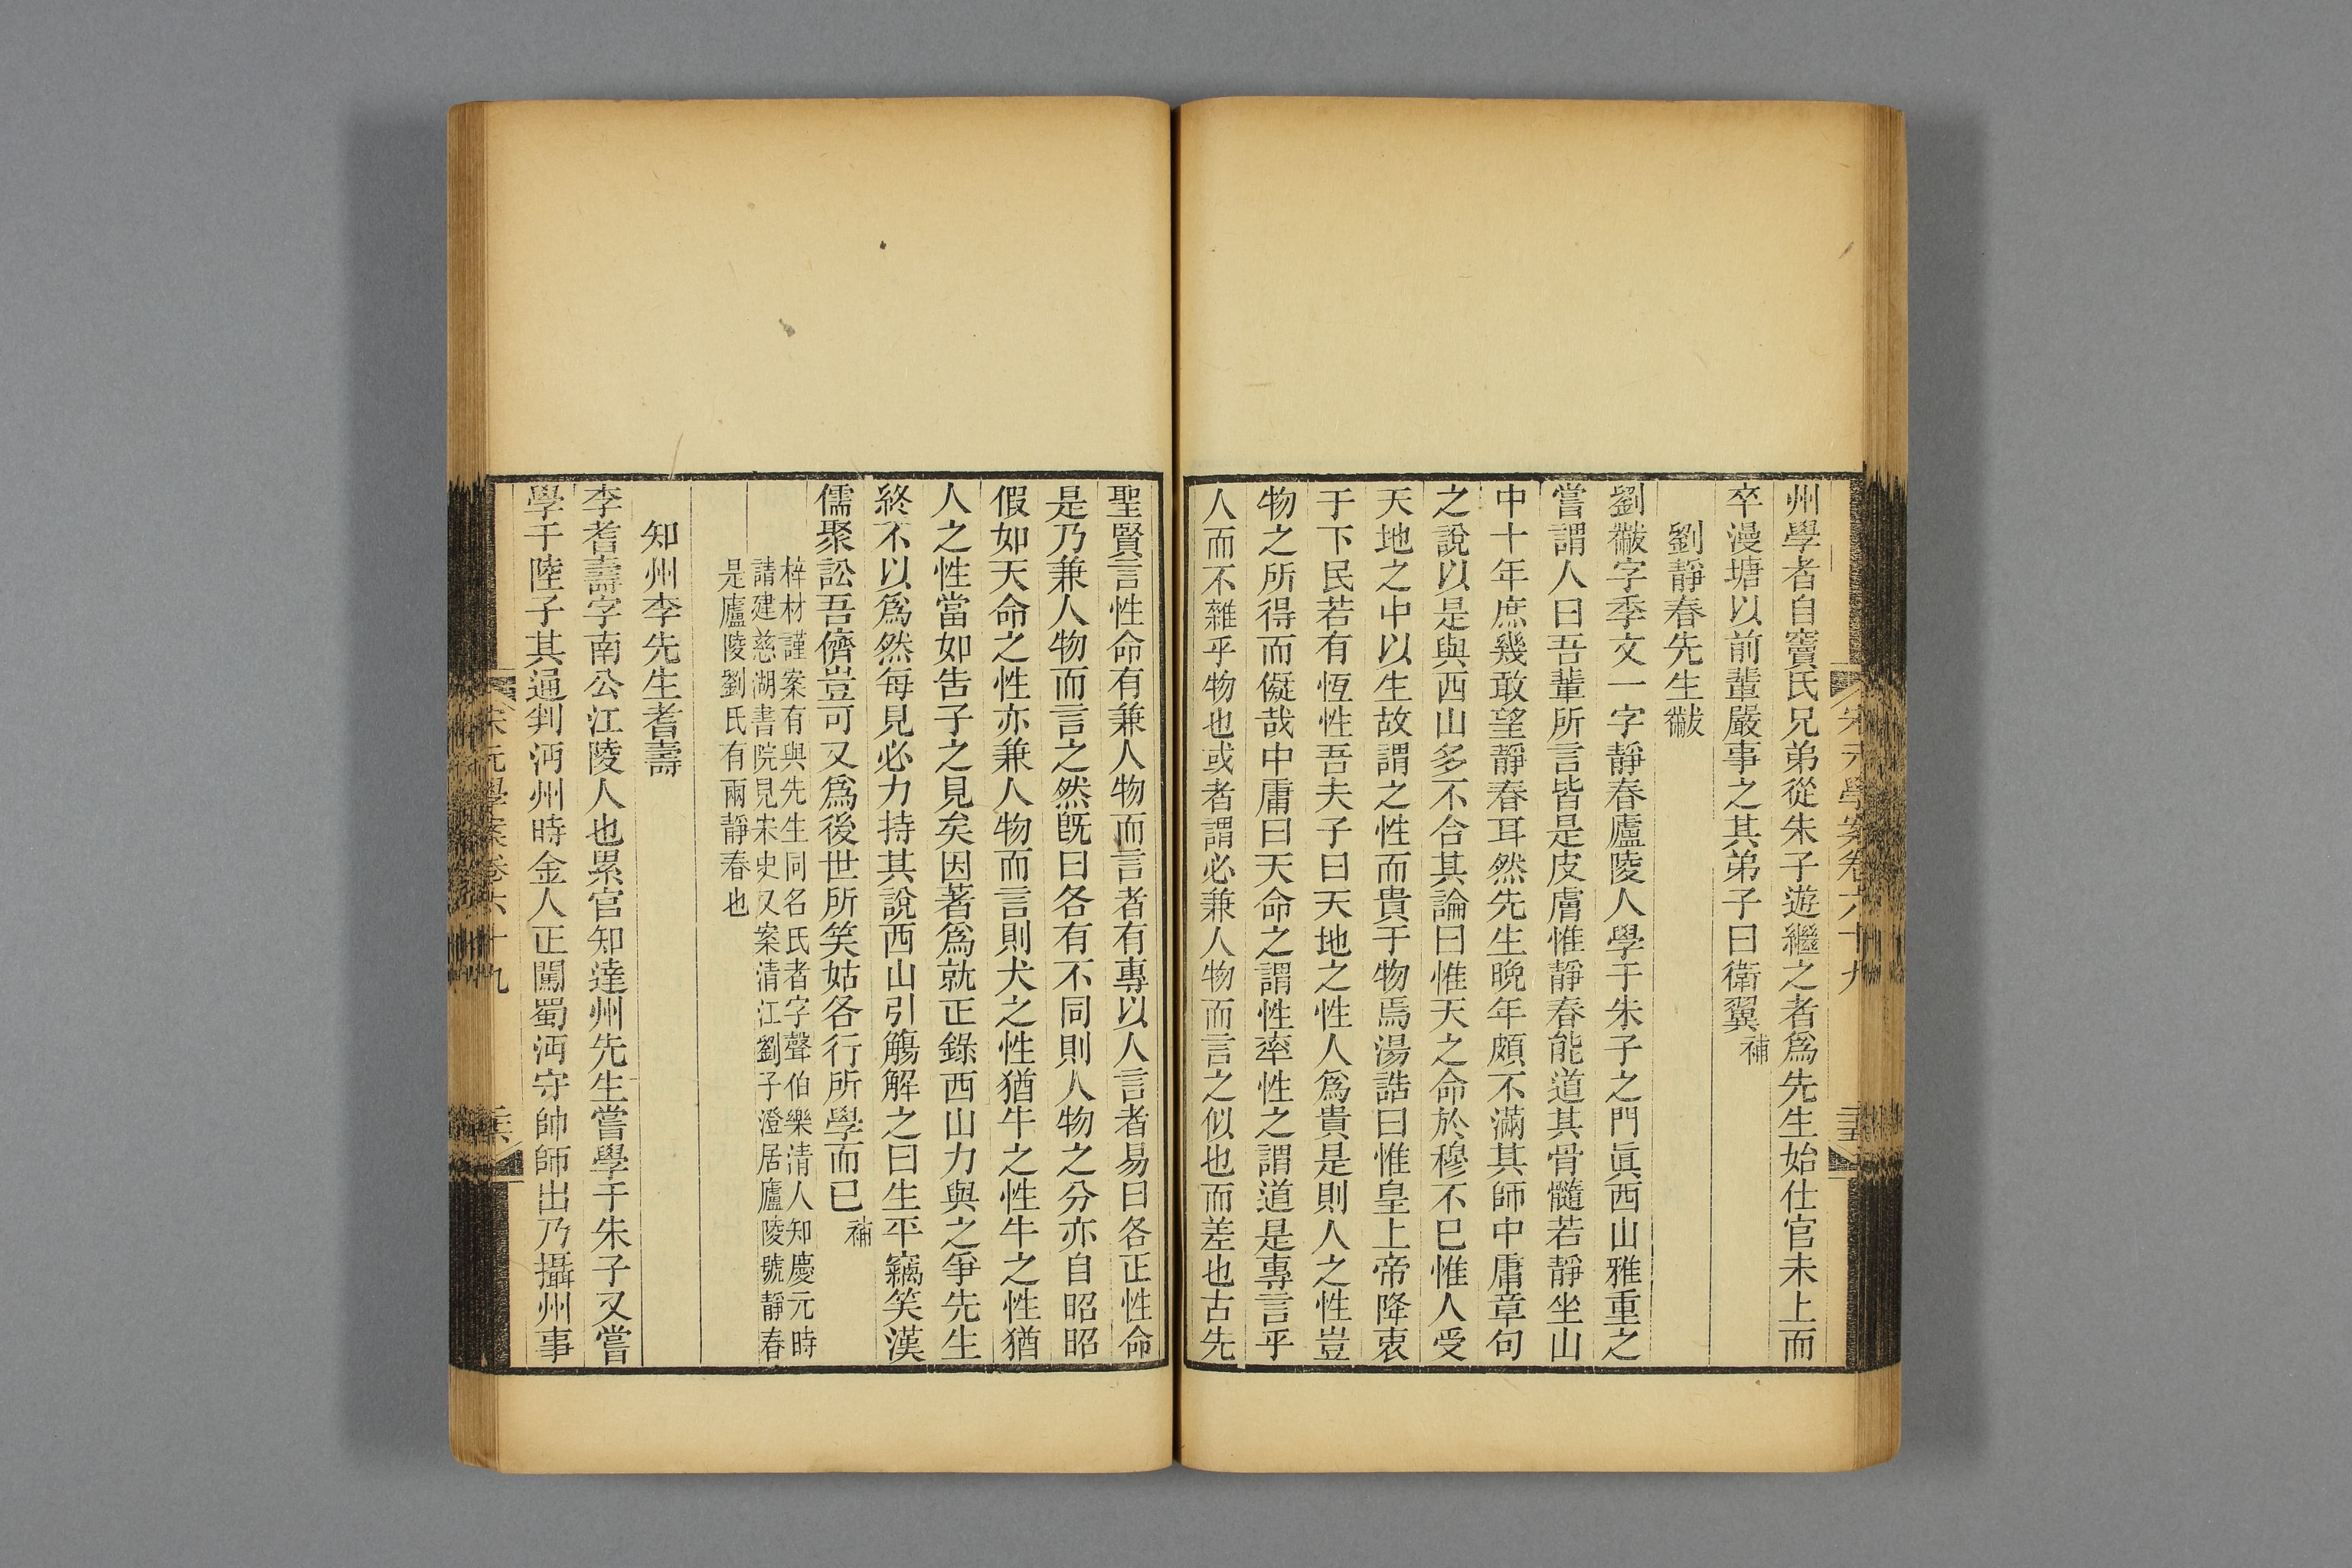 州學者自竇氏兄弟從朱子遊繼之者爲先生始仕官未上而
卒漫塘以前輩嚴事之其弟子曰衛翼補
劉靜春先生黻
劉黻字季文一字靜春廬陵人學于朱子之門眞西山雅重之
嘗謂人曰吾輩所言皆是皮膚惟靜春能道其骨髓若靜坐山
中十年庶幾敢望靜春耳然先生晚年頗不滿其師中庸章句
之說以是與西山多不合其論曰惟天之命於穆不已惟人受
天地之中以生故謂之性而貴于物焉湯誥曰惟皇上帝降衷
于下民若有恆性吾夫子曰天地之性人爲貴是則人之性豈
物之所得而儗哉中庸曰天命之謂性率性之謂道是專言乎
人而不雜乎物也或者謂必兼人物而言之似也而差也古先
聖賢言性命有兼人物而言者有專以人言者易曰各正性命
是乃兼人物而言之然旣曰各有不同則人物之分亦自昭昭
假如天命之性亦兼人物而言則犬之性猶牛之性牛之性猶
人之性當如告子之見矣因著爲就正錄西山力與之爭先生
終不以爲然每見必力持其說西山引觴解之曰生平竊笑漢
儒聚訟吾儕豈可又爲後世所笑姑各行所學而已補
梓材謹案有與先生同名氏者字聲伯樂清人知慶元時
請建慈湖書院見宋史又案清江劉子澄居廬陵號靜春
是廬陵劉氏有兩靜春也
知州李先生耆壽
李耆壽字南公江陵人也累官知達州先生嘗學于朱子又嘗
學于陸子其通判沔州時金人正闖蜀沔守帥師出乃攝州事
宋元學案卷六十九